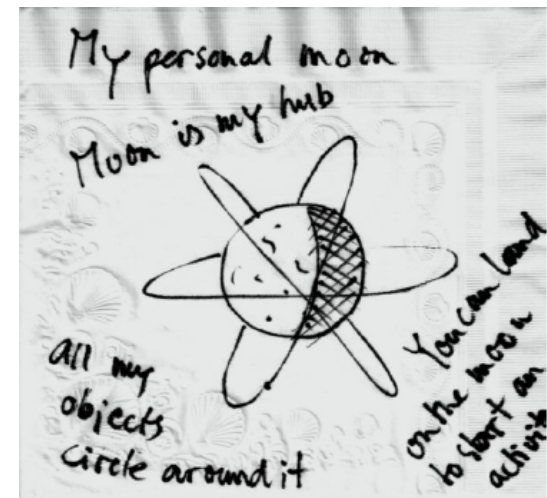 My personal moon
Moon is my hub
all my
objects
circle around it
You can land
on the moon
to start an
activity